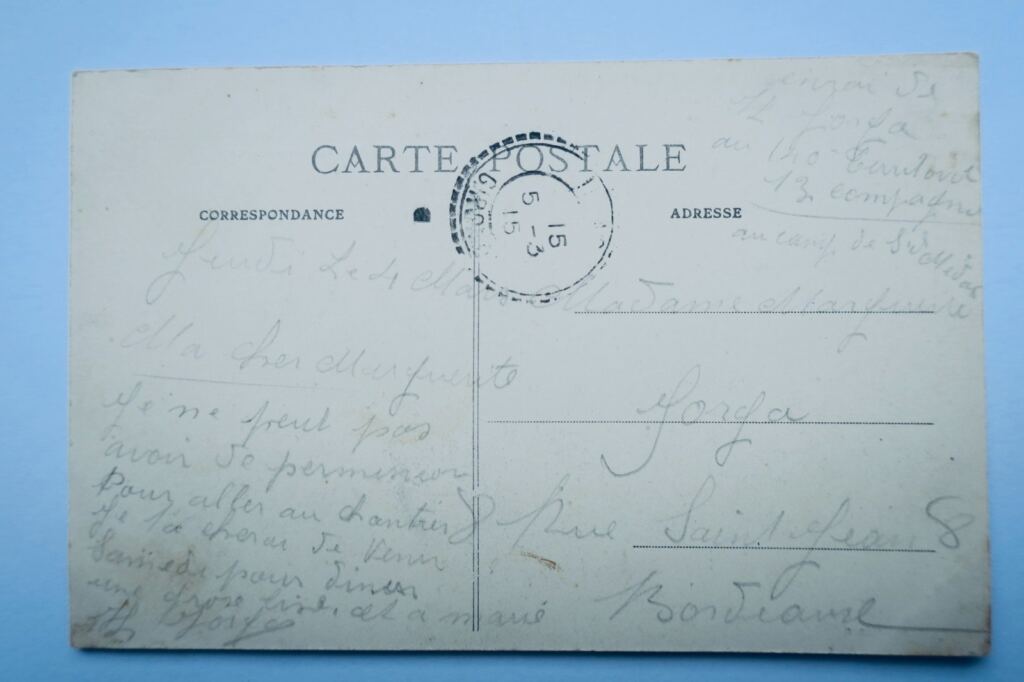 envoi de
H Jorga
au 140 Territorial
13 compagnie
au camp de St Médar
CARTE POSTALE
CORRESPONDANCE
ADRESSE
GIRO
15
15 -3
5
Jeudi Le 4 Mars
Ma cher Marguerite
Je ne peut pas
avoir de permission
Pour aller au chantier
Je de venir
Samedi pour diner
une grose bise, et a mané
H Jorga
Madame Marguerite
Jorga
8 Rue Saint Jean 8
Bordeaux